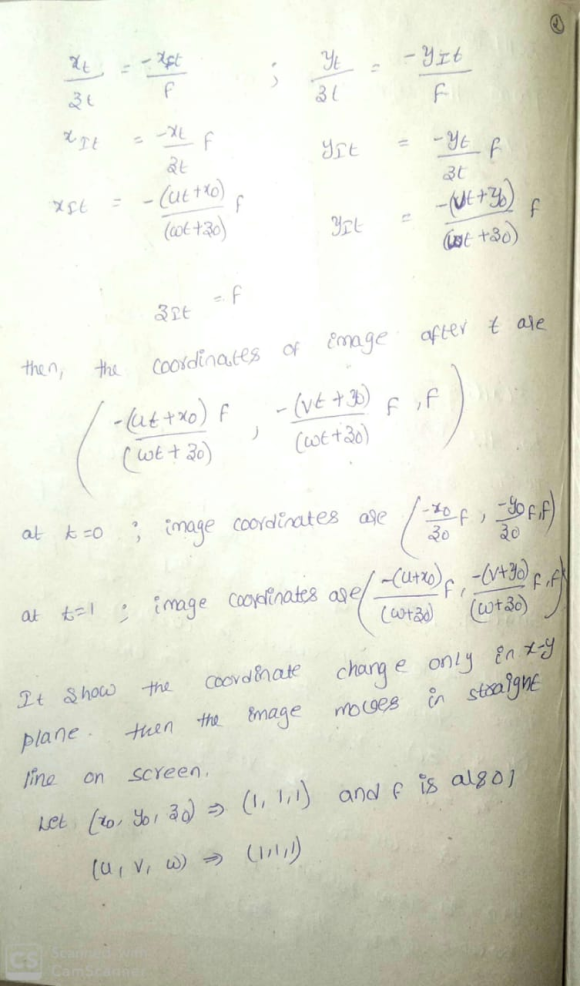 2
x_t/z_t = -x_It/f ; y_t/z_t = -y_It/f
x_It = -x_t/z_t f    y_It = -y_t/z_t f
x_It = -(ut+x0)/(wt+z0) f    y_It = -(vt+y0)/(wt+z0) f
z_It = f
then, the coordinates of image after t are
( -(ut+x0)/(wt+z0) f , -(vt+y0)/(wt+z0) f , f )
at t=0 ; image coordinates are ( -x0/z0 f , -y0/z0 f, f )
at t=1 ; image coordinates are ( -(u+x0)/(w+z0) f , -(v+y0)/(w+z0) f, f )
It show the coordinate change only in x-y
plane. then the image moves in straight
line on screen.
Let (x0, y0, z0) ⇒ (1, 1, 1) and f is also 1
(u, v, w) ⇒ (1,1,1)
CS Scanned with
CamScanner